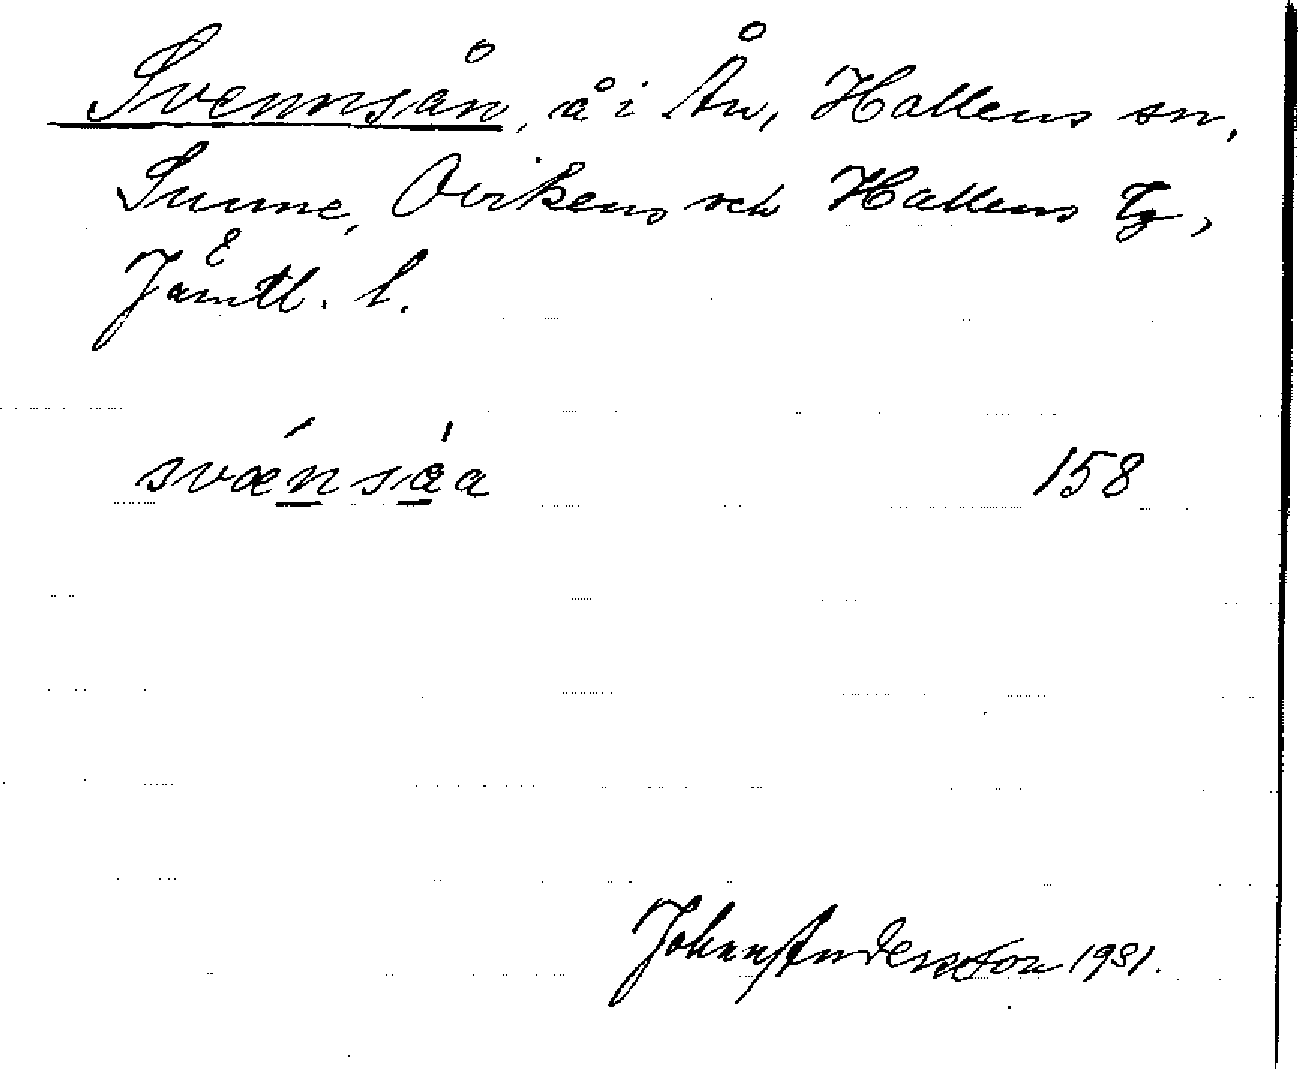 Svennsån, å i Ån, Hallens sn,
Sunne, Ovikens och Hallens tg,
Jämtl. l.
svæ̀nsá̱a 158
Johan Anderson 1931.